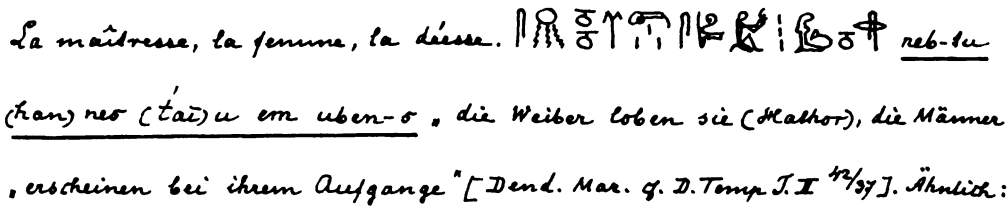 La maîtresse, la femme, la déesse. neb-tu
(han) neo (t́aī)u em uben-s „ die Weiber loben sie (Hathor), die Männer
„erscheinen bei ihrem Aufgange" [Dend. Mar. g. D. Temp T. II 42/37]. Ähnlich: